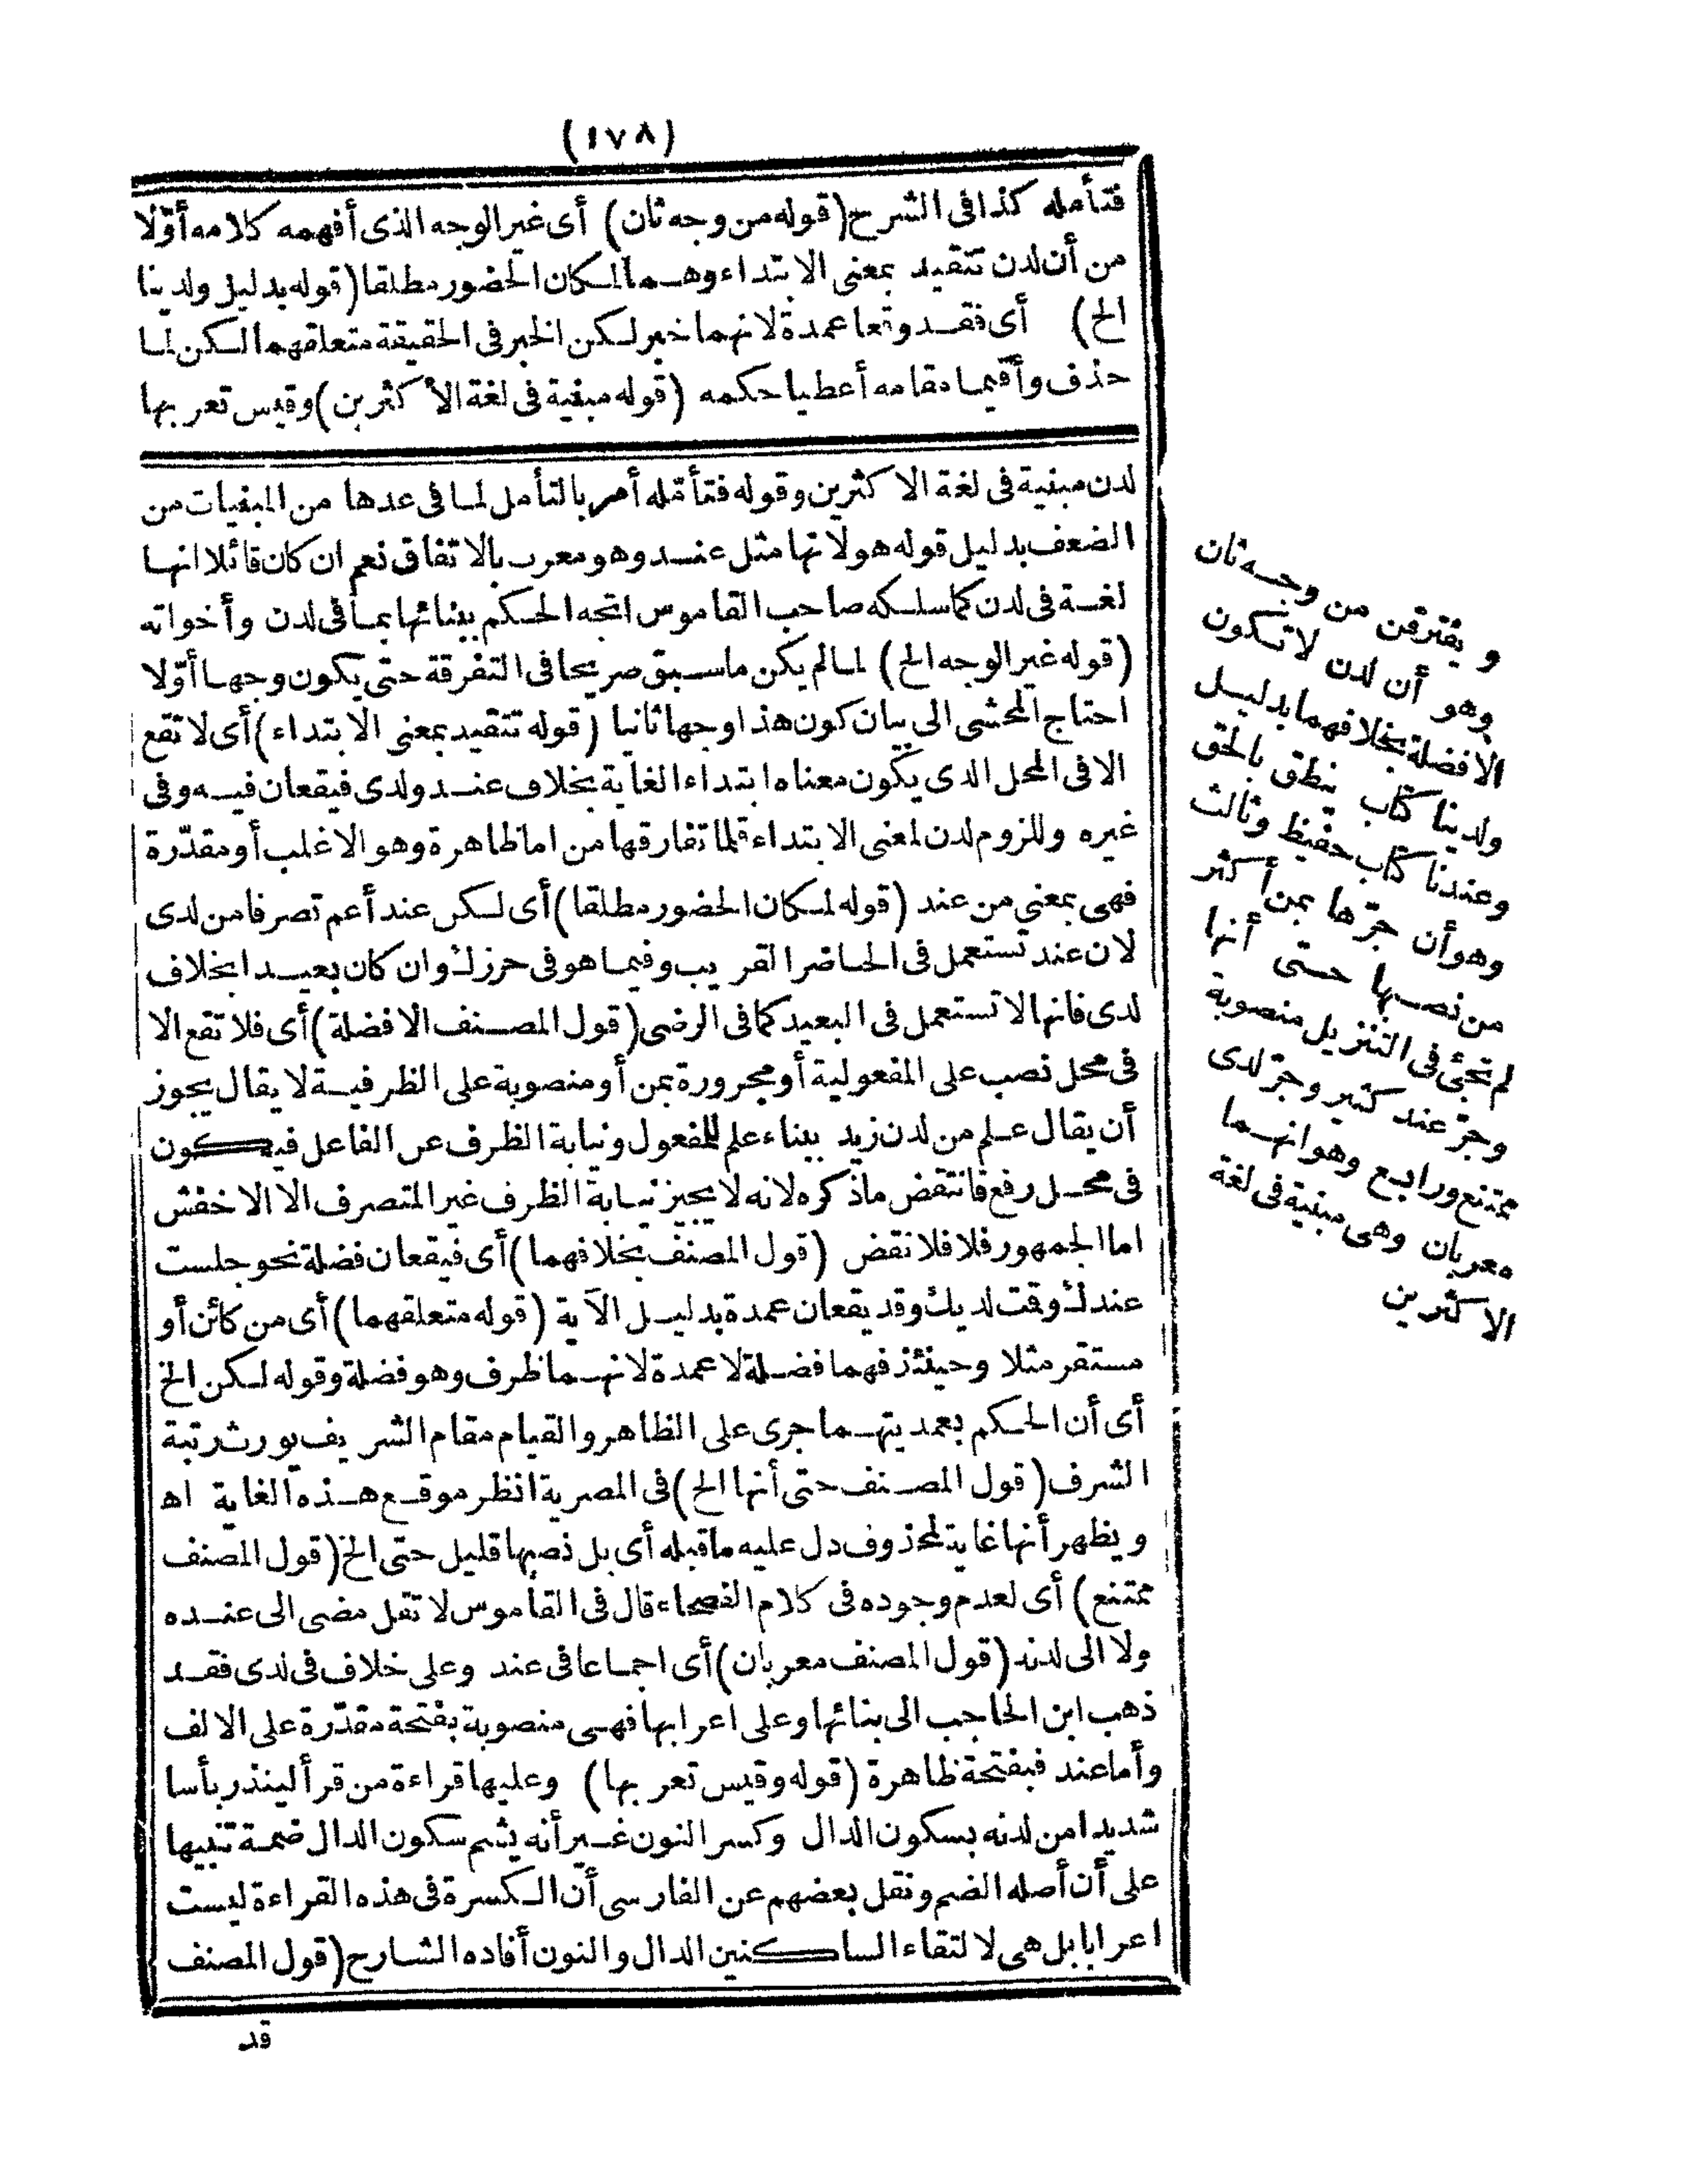 (١٧٨)
فتأمله كذا فى الشرح (قوله من وجه ثان) أى غير الوجه الذى أفهمه كلامه أوّلا
من أن لدن تتقيد بمعنى الابتداء وهما لمكان الحضور مطلقا (قوله بدليل ولدينا
الخ) أى فقد وقعا عمدة لانهما خبر لكن الخبر فى الحقيقة متعلقهما لكن لما
حذف وأقيما مقامه أعطيا حكمه (قوله مبنية فى لغة الأكثرين) وقيس تعربها
لدن مبنية فى لغة الاكثرين وقوله فتأمّله أمر بالتأمل لما فى عدها من المبنيات من
الضعف بدليل قوله هو لانها مثل عند وهو معرب بالاتفاق نعم ان كان قائلا انها
لغة فى لدن كما سلكه صاحب القاموس اتجه الحكم ببنائها بما فى لدن وأخواته
(قوله غير الوجه الخ) لما لم يكن ما سبق صريحا فى التفرقة حتى يكون وجها أوّلا
احتاج المحشى الى بيان كون هذا وجها ثانيا (قوله تتقيد بمعنى الابتداء) أى لا تقع
الا فى المحل الذى يكون معناه ابتداء الغاية بخلاف عند ولدى فيقعان فيه وفى
غيره وللزوم لدن لمعنى الابتداء قلما تفارقها من اما ظاهرة وهو الاغلب أو مقدّرة
فهى بمعنى من عند (قوله لمكان الحضور مطلقا) أى لكن عند أعم تصرفا من لدى
لان عند تستعمل فى الحاضر القريب وفيما هو فى حرزك وان كان بعيدا بخلاف
لدى فانها لا تستعمل فى البعيد كما فى الرضى (قول المصنف الا فضلة) أى فلا تقع الا
فى محل نصب على المفعولية أو مجرورة بمن أو منصوبة على الظرفية لا يقال يجوز
أن يقال علم من لدن زيد ببناء علم للمفعول ونيابة الظرف عن الفاعل فيكون
فى محل رفع فانتقض ما ذكره لانه لا يجيز نيابة الظرف غير المتصرف الا الاخفش
اما الجمهور فلا فلا نقض (قول المصنف بخلافهما) أى فيقعان فضلة نحو جلست
عندك وقمت لديك وقد يقعان عمدة بدليل الآية (قوله متعلقهما) أى من كائن أو
مستقر مثلا وحينئذ فهما فضلة لا عمدة لانهما ظرف وهو فضلة وقوله لكن الخ
أى أن الحكم بعمديتهما جرى على الظاهر والقيام مقام الشريف يورث رتبة
الشرف (قول المصنف حتى أنها الخ) فى المصرية انظر موقع هذه الغاية اه
ويظهر أنها غاية لمحذوف دل عليه ما قبله أى بل نصبها قليل حتى الخ (قول المصنف
ممتنع) أى لعدم وجوده فى كلام الفصحاء قال فى القاموس لا تقل مضى الى عنده
ولا الى لدنه (قول المصنف معربان) أى اجماعا فى عند وعلى خلاف فى لدى فقد
ذهب ابن الحاجب الى بنائها وعلى اعرابها فهى منصوبة بفتحة مقدّرة على الالف
وأما عند فبفتحة ظاهرة (قوله وقيس تعربها) وعليها قراءة من قرأ لينذر بأسا
شديدا من لدنه بسكون الدال وكسر النون غير أنه يشم سكون الدال ضمة تنبيها
على أن أصله الضم ونقل بعضهم عن الفارسى أنّ الكسرة فى هذه القراءة ليست
اعرابا بل هى لالتقاء الساكنين الدال والنون أفاده الشارح (قول المصنف
قد
ويفترقن من وجه ثان
وهو أن لدن لا تكون
الا فضلة بخلافهما بدليل
ولدينا كتاب ينطق بالحق
وعندنا كتاب حفيظ وثالث
وهو أن جرّها بمن أكثر
من نصبها حتى أنها
لم تجئ فى التنزيل منصوبة
وجرّ عند كثير وجرّ لدى
ممتنع ورابع وهو انهما
معربان وهى مبنية فى لغة
الاكثرين